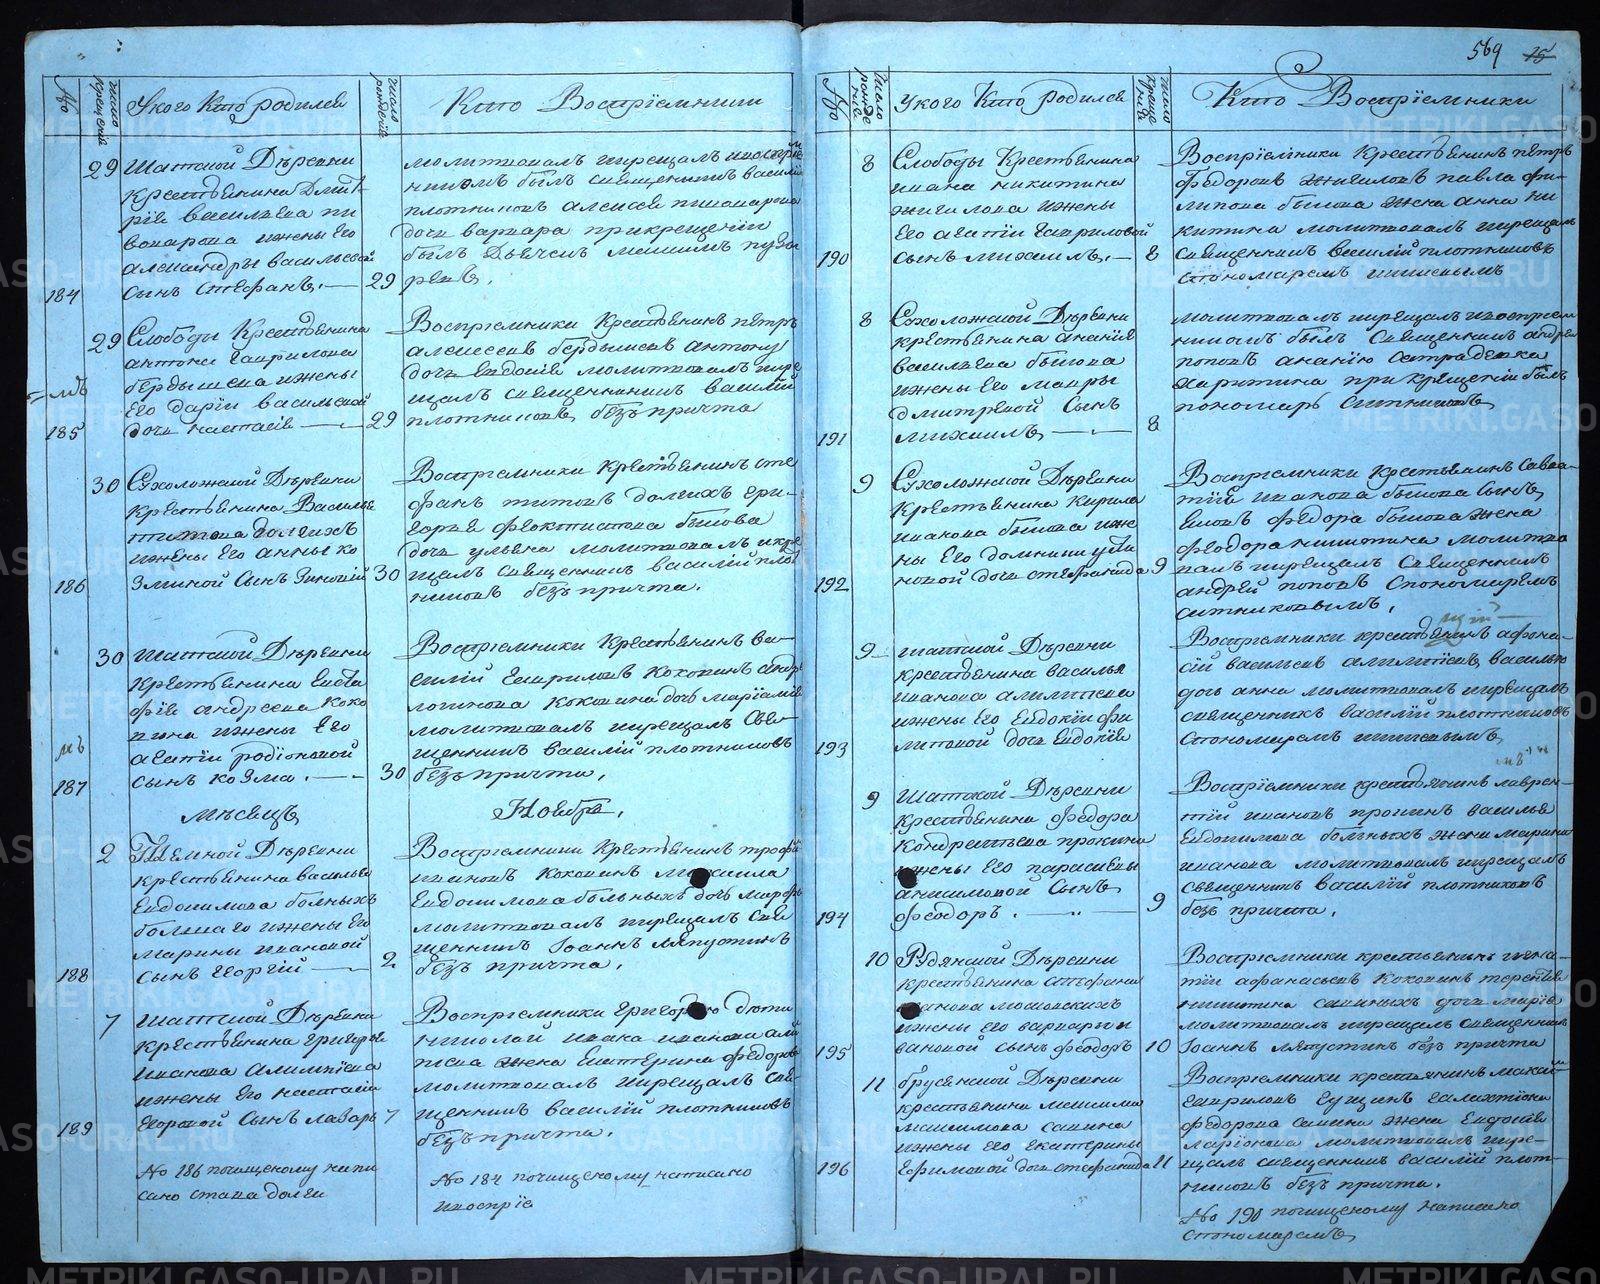 569 15
№
число крещенія
Укого Кто родился
число рожденія
Кто Воспрїемники
29 Шатской Деревни
Крестьянина Дмит
рія василева пи
воварова ижены Его
александры васильевой
184 Сынъ Стефанъ. — 29
молитвовалъ икрещалъ ивоспрїем
никомъ былъ священникъ василій
плотниковъ алексея пивоварова
дочь варвара прикрещеніи
былъ Дьячекъ
29 Слободы Крестьянина
антона Гаврилова
бердышева ижены
Его дарїи василевой
185 дочь настасія — 29
Воспрїемники Крестьянинъ петръ
алексеевъ бердышевъ антону
дочь Евдокія молитвовалъ икре
щалъ священникъ василій
плотниковъ, безъ причта
30 Сухоложской Деревни
Крестьянина Василья
титова долгихъ
ижены Его анны ко
186 зминой Сынъ Зиновій 30
Воспрїемники Крестьянинъ сте
фанъ титовъ долгихъ гри-
горья феоктистова быкова
дочь ульяна молитвовалъ икре
щалъ священникъ василій плот
никовъ безъ причта.
30 Шатской Деревни
Крестьянина Евста
фія андреева Коко
вина ижены Его
агатїи родіоновой
187 сынъ козма. — 30
Воспрїемники Крестьянинъ ва-
силій Гавриловъ Коковинъ андр
логинова Коковина дочь марїамія
молитвовалъ икрещалъ Свя-
щенникъ василій плотниковъ
безъ причта,
мѣсяцъ Ноября.
2 Темной Деревни
Крестьянина василья
Евдокимова болныхъ
большаго ижены Его
марины ивановой
188 Сынъ Георгій — 2
Воспрїемники Крестьянинъ трофи
ивановъ Коковинъ михаила
Евдокимова больныхъ дочь марфа
молитвовалъ икрещалъ свя
щенникъ Іоаннъ ляпустинъ
безъ причта.
7 Шатской Деревни
Крестьянина григорья
Иванова алимпіева
ижены Его настасіи
189 Егоровой Сынъ лазарь 7
Воспрїемники григорью дяти
николай ивана иванова али
пїева жена Екатерина федорова
молитвовалъ икрещалъ свя-
щенникъ василій плотниковъ
безъ причта.
№ 186 почищеному напи
сано става долги
№ 184 почищеному написано
ивоспрїе
№
число рожденія
Укого Кто родился
число крещенія
Кто Воспрїемники
8 Слободы Крестьянина
ивана никитина
жигалова ижены
Его агатїи Гавриловой
190 сынъ михаилъ. — 8
Воспрїемники Крестьянинъ петръ
федоровъ жигаловъ павла фи-
липова быкова жена анна ни
китина молитвовалъ икрещалъ
священникъ василій плотниковъ
спономаремъ
8 Сухоложской Деревни
крестьянина ананія
василева быкова
ижены Его мавры
дмитревой Сынъ
191 михаилъ, — 8
молитвовалъ икрещалъ ивоспрїем
никомъ былъ Священникъ андрей
поповъ ананію
харитина при крещеніи былъ
пономарь Ситниковъ,
9 Сухоложской Деревни
Крестьянина Кирила
иванова быкова иже
ны Его домники усти
192 новой дочь стефанида 9
Воспрїемники крестьянинъ савва-
тій иванова быкова сынъ
федора быкова жена
феодора никитина молитво
валъ икрещалъ священникъ
андрей поповъ Спономаремъ
ситниковымъ.
9 Шатской Деревни
крестьянина василья
иванова алимпіева
ижены Его Евдокіи фи
193 липовой дочь Евдокія
Воспрїемники крестьянинъ афона-
сій василевъ алимпїевъ василью
дочь анна молитвовалъ икрещалъ
священникъ василій плотниковъ
спономаремъ
9 Шатской Деревни
крестьянина федора
Кондратьева прокина
ижены Его парасковьи
анисимовой Сынъ
194 феодоръ. — 9
Воспрїемники крестьянинъ лаврен-
тій ивановъ прокинъ василья
Евдокимова больныхъ жена марина
иванова молитвовалъ икрещалъ
священникъ василій плотниковъ
безъ причта.
10 Рудянской Деревни
крестьянина стефана
иванова московскихъ
ижены Его варвары и
195 вановой сынъ феодоръ 10
Воспрїемники крестьянинъ игна-
тій афанасьевъ Коковинъ терентья
никитина саввиныхъ дочь марія
молитвовалъ икрещалъ священникъ
Іоаннъ ляпустинъ безъ причта
11 брусянской Деревни
крестьянина максима
максимова савина
ижены Его Екатерины
196 Ефимовой дочь стефанида 11
Воспрїемники крестьянинъ макси
Гавриловъ Гущинъ Галахтіона
федорова савина жена Евдокія
ларіонова молитвовалъ икре-
щалъ священникъ василій плот-
никовъ безъ причта.
№ 190 почищеному написано
спономаремъ,
METRIKI.GASO-URAL.RU